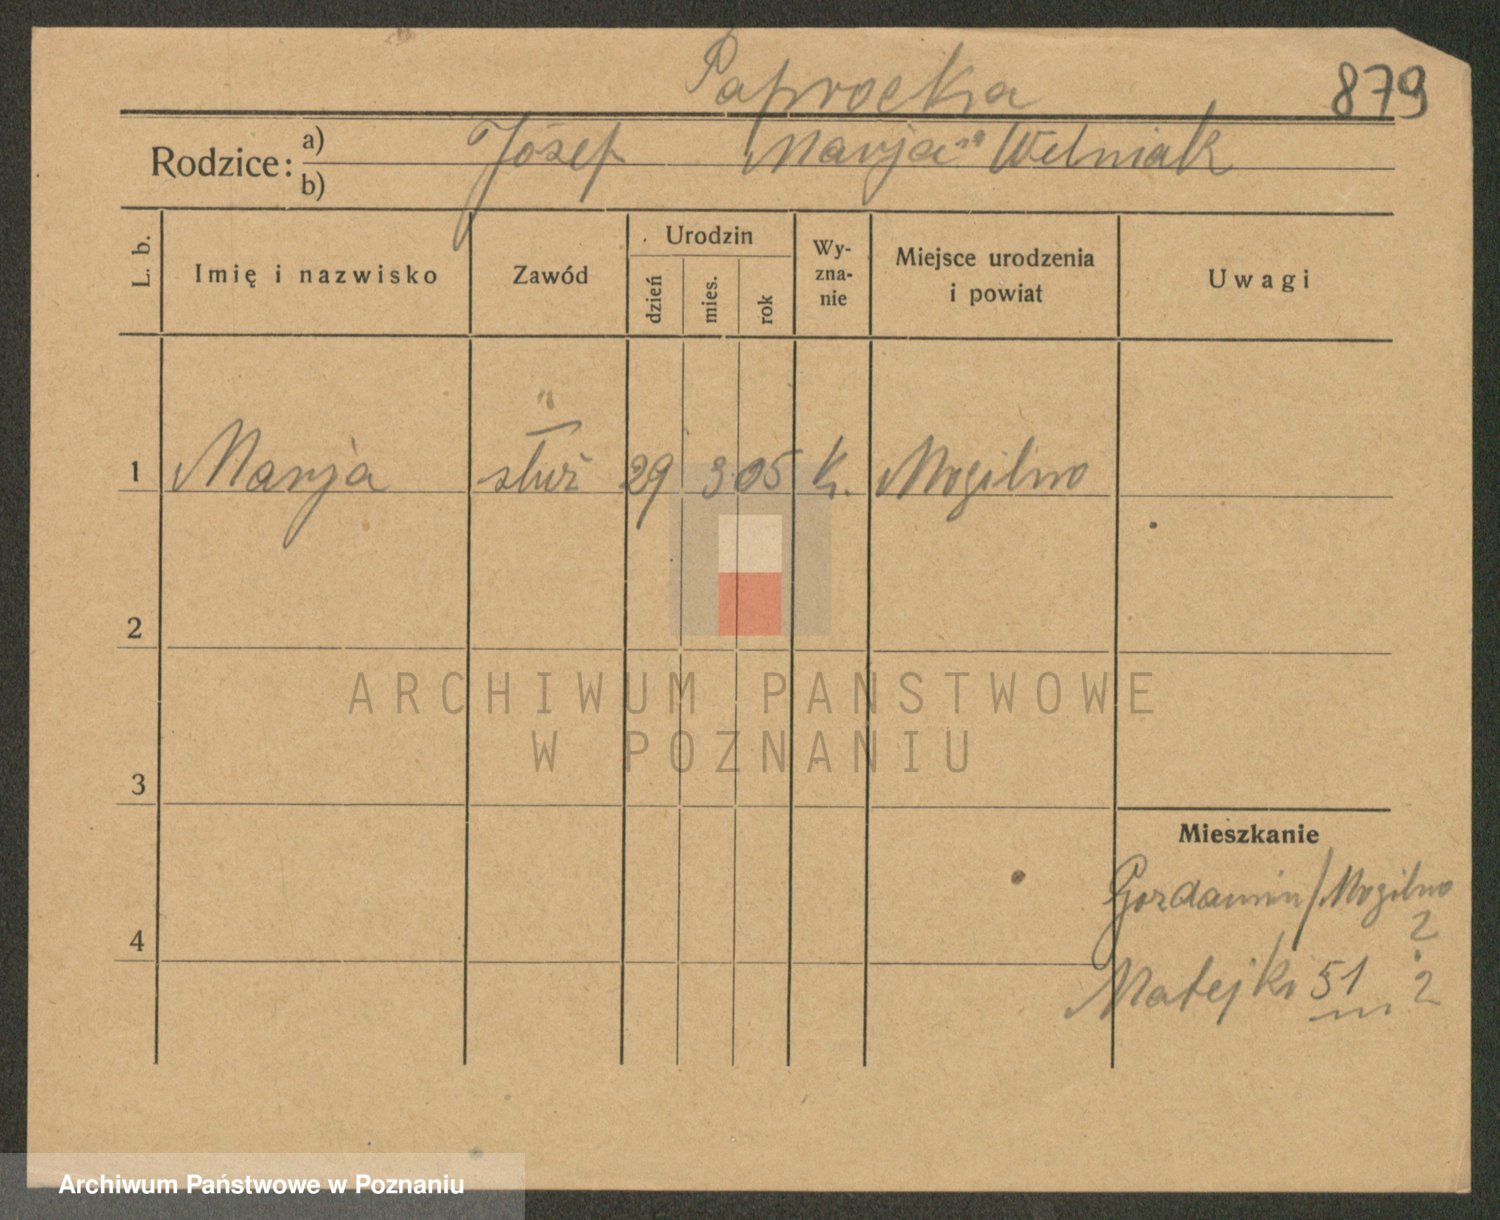 Paprocka 879
Rodzice: a) b) Józef Marja Welniak
L. b. Imię i nazwisko Zawód Urodzin dzień mies. rok Wyznanie Miejsce urodzenia i powiat Uwagi
1 Marja służ 29 3 05 k. Mogilno
2
ARCHIWUM PAŃSTWOWE
W POZNANIU
3
Mieszkanie
/Mogilno
?
4
Matejki 51 2
Archiwum Państwowe w Poznaniu